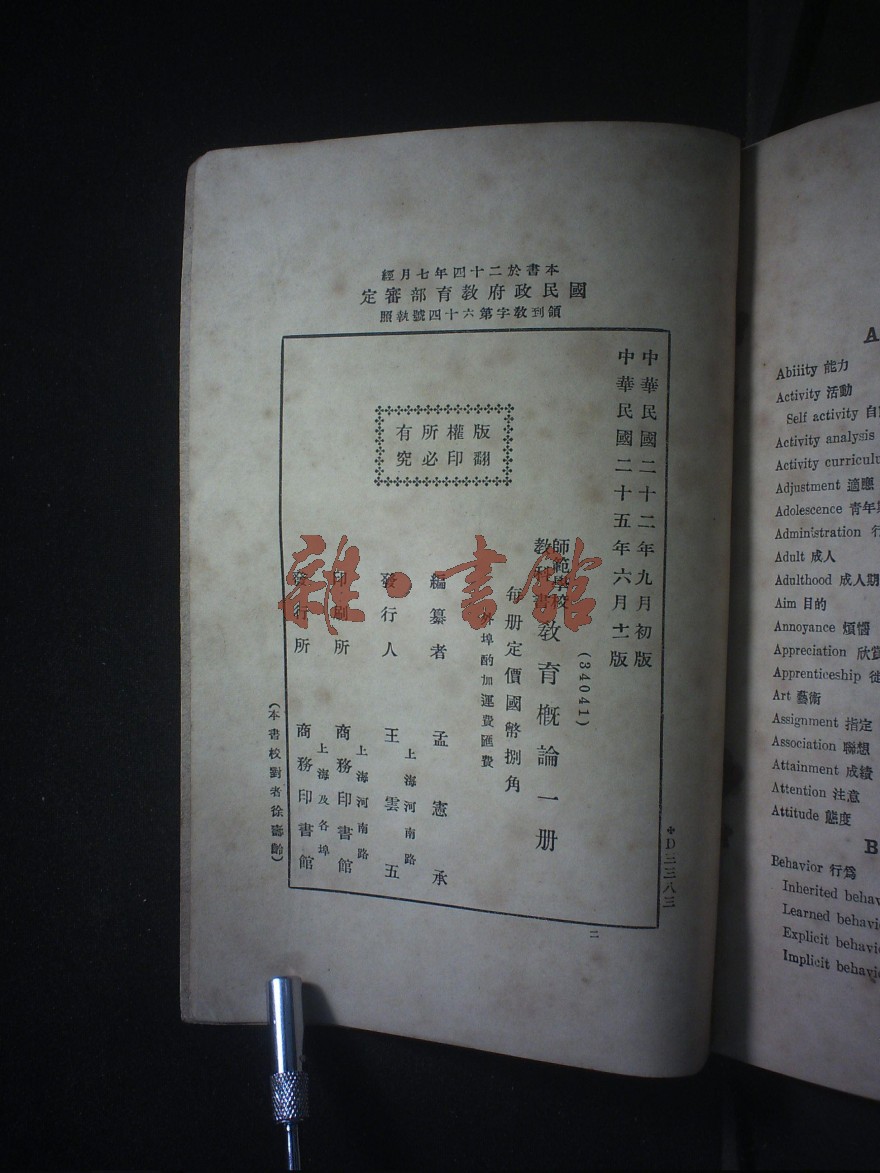 本書於二十四年七月經
國民政府教育部審定
領到教字第六十四號執照
中華民國二十二年九月初版
中華民國二十五年六月十二版
(34041)
師範學校
教科書
教育概論一册
每册定價國幣捌角
外埠酌加運費匯費
版權所有
翻印必究
編纂者 孟憲承
發行人 王雲五
上海河南路
印刷所 商務印書館
上海河南路
發行所 商務印書館
上海及各埠
(本書校對者徐壽齡)
*D三三八三
二
雜·書館
A
Abiiity 能力
Activity 活動
Self activity 自
Activity analysis
Activity curriculu
Adjustment 適應
Adolescence 青年期
Administration 行
Adult 成人
Adulthood 成人期
Aim 目的
Annoyance 煩惱
Appreciation 欣賞
Apprenticeship 徒
Art 藝術
Assignment 指定
Association 聯想
Attainment 成績
Attention 注意
Attitude 態度
B
Behavior 行爲
Inherited behav
Learned behavi
Explicit behavi
Implicit behavi